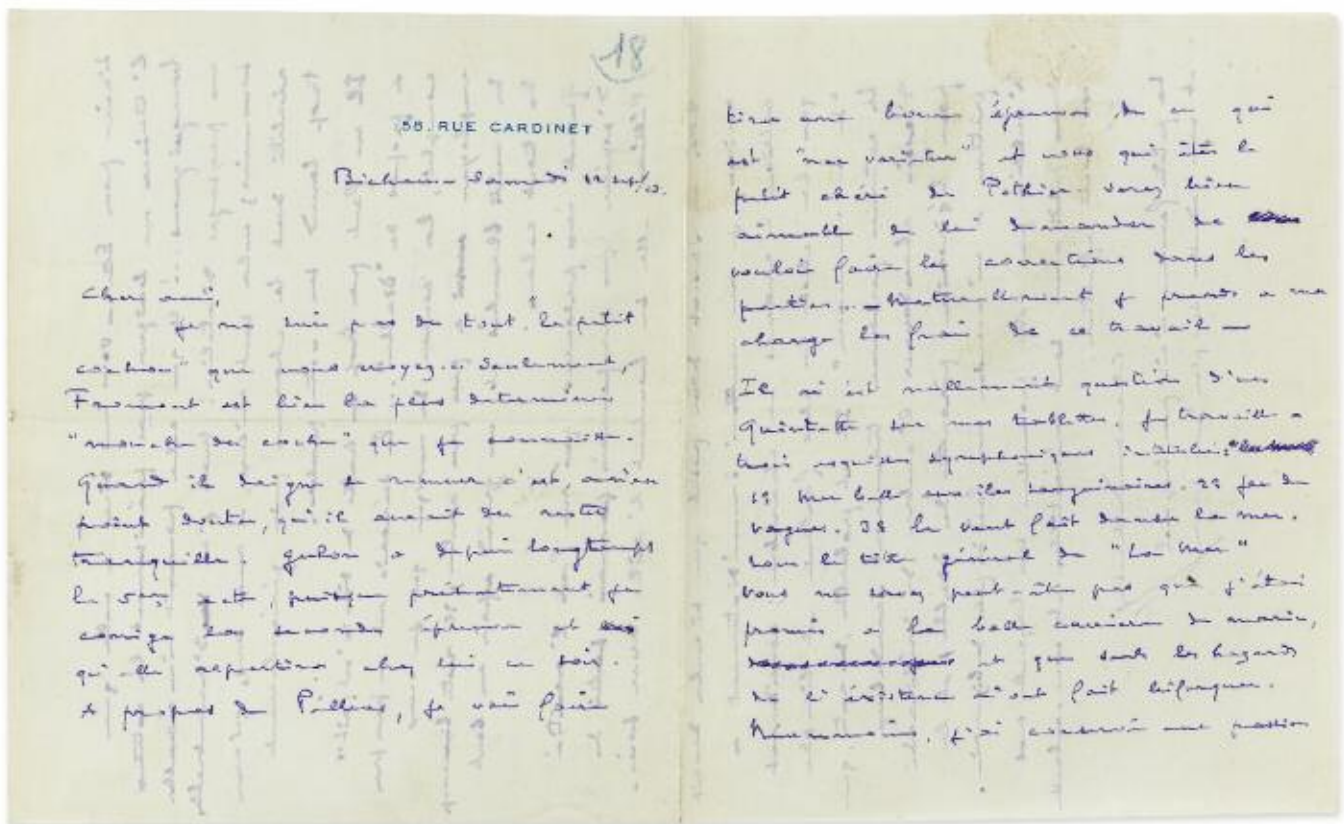 18
58. RUE CARDINET
Bichain – Samedi 12 sept/03.
Cher ami,
Je ne suis pas du tout "le petit
cochon" que vous croyez..! Seulement,
Fromont est bien la plus déterminée
"mouche du coche" que je connaisse.
Quand il daigne se remuer c'est, n'en
point douter, qu'il aurait du rester
tranquille. Gulon a depuis longtemps
le 5me acte, puisque présentement je
corrige les secondes épreuves et
qu'elle repartira chez lui ce soir.
A propos de Pelléas, je vais faire
tirer une bonne épreuve de ce qui
est "ne varietur" et vous qui êtes le
petit chéri de Pothier serez bien
aimable de lui demander de
vouloir faire les corrections dans les
parties. – Naturellement je prends a ma
charge les frais de ce travail –
Il n'est nullement question d'un
Quintette sur mes tablettes. Je travaille a
trois esquisses symphoniques intitulées:
1º mer belle aux îles sanguinaires. 2º jeu de
vagues. 3º le vent fait danser la mer.
sous le titre général de "La Mer"
Vous ne savez peut-être pas que j'étais
promis a la belle carrière de marin,
et que seuls les hasards
de l'existence m'ont fait bifurquer.
Néanmoins, j'ai conservé une passion